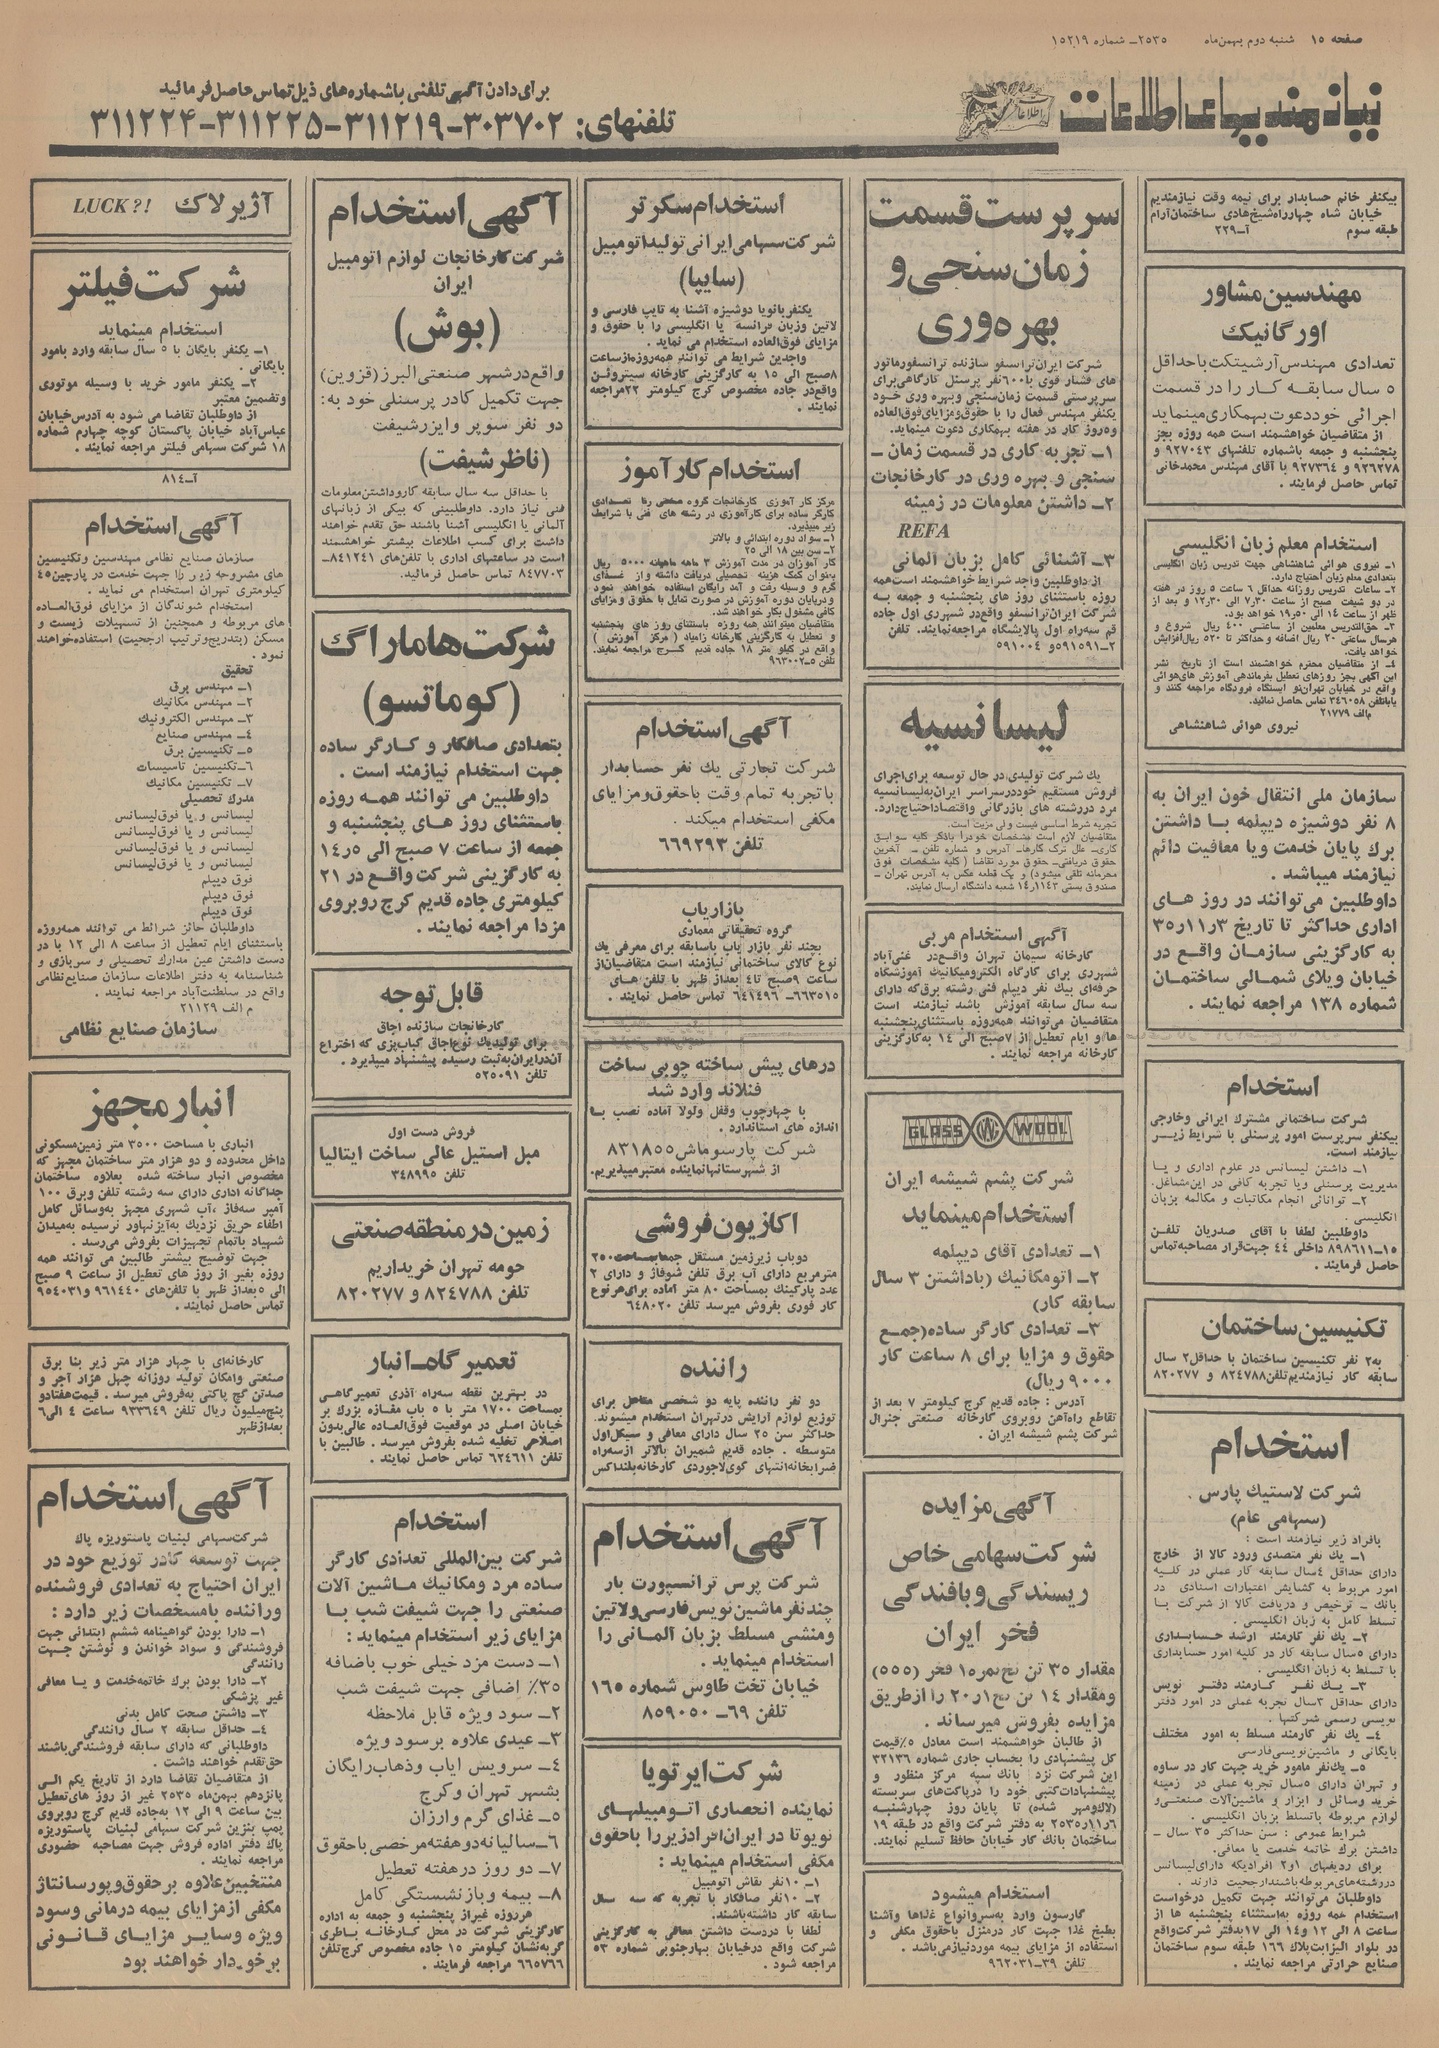 صفحه ۱۵ شنبه دوم بهمن‌ماه ۲۵۳۵ـ شماره ۱۵۲۱۹
نیازمندیهای اطلاعات
برای دادن آگهی تلفنی باشماره‌های ذیل تماس حاصل فرمائید
تلفنهای: ۳۰۳۷۰۲-۳۱۱۲۱۹-۳۱۱۲۲۵-۳۱۱۲۲۴
بیکنفر خانم حسابدار برای نیمه وقت نیازمندیم
خیابان شاه چهارراه‌شیخ‌هادی ساختمان‌آرام
طبقه سوم آ-۲۲۹
مهندسین مشاور
اورگانیک
تعدادی مهندس آرشیتکت باحداقل
۵ سال سابقه کار را در قسمت
اجرائی خود دعوت بهمکاری مینماید
از متقاضیان خواهشمند است همه روزه بجز
پنجشنبه و جمعه باشماره تلفنهای ۹۲۷۰۴۳
و ۹۲۶۲۷۸ و ۹۲۷۳۶۴ با آقای مهندس محمدخانی
تماس حاصل فرمایند .
استخدام معلم زبان انگلیسی
۱ـ نیروی هوائی شاهنشاهی جهت تدریس زبان انگلیسی
بتعدادی معلم زبان احتیاج دارد.
۲ـ ساعات تدریس روزانه حداقل ۶ ساعت ۵ روز در هفته
در دو شیفت صبح از ساعت ۷ر۳۰ الی ۱۲ر۳۰ و بعد از
ظهر از ساعت ۱۴ الی ۱۹ر۵۰ خواهد بود.
۳ـ حق‌التدریس معلمین از ساعتی ۴۰۰ ریال شروع و
هرسال ساعتی ۲۰ ریال اضافه و حداکثر تا ۵۲۰ ریال‌افزایش
خواهد یافت.
۴ـ از متقاضیان محترم خواهشمند است از تاریخ نشر
این آگهی بجز روزهای تعطیل بفرماندهی آموزش های‌هوائی
واقع در خیابان تهران‌نو ایستگاه فرودگاه مراجعه کنند و
یاباتلفن ۳۴۶۰۵۸ تماس حاصل نمائید.
م‌الف ۲۱۷۷۹
نیروی هوائی شاهنشاهی
سازمان ملی انتقال خون ایران به
۸ نفر دوشیزه دیپلمه با داشتن
برك پایان خدمت ویا معافیت دائم
نیازمند میباشد .
داوطلبین می‌توانند در روز های
اداری حداکثر تا تاریخ ۳ر۱۱ر۳۵
به کارگزینی سازمان واقع در
خیابان ویلای شمالی ساختمان
شماره ۱۳۸ مراجعه نمایند .
استخدام
شرکت ساختمانی مشترك ایرانی وخارجی
بیکنفر سرپرست امور پرسنلی با شرایط زیر
نیازمند است.
۱ـ داشتن لیسانس در علوم اداری و یا
مدیریت پرسنلی ویا تجربه کافی در این‌مشاغل.
۲ـ توانائی انجام مکاتبات و مکالمه بزبان
انگلیسی.
داوطلبین لطفا با آقای صدریان تلفن
۱۵ـ۸۹۸۶۱۱ داخلی ۴۴ جهت‌قرار مصاحبه‌تماس
حاصل فرمایند .
تکنیسین ساختمان
به۲ نفر تکنیسین ساختمان با حداقل۲ سال
سابقه کار نیازمندیم‌تلفن۸۲۴۷۸۸ و ۸۲۰۲۷۷
استخدام
شرکت لاستیك پارس
(سهامی عام)
بافراد زیر نیازمند است :
۱ـ یك نفر متصدی ورود کالا از خارج
دارای حداقل ۴سال سابقه کار عملی در کلیه
امور مربوط به گشایش اعتبارات اسنادی در
بانك ـ ترخیص و دریافت کالا از شرکت با
تسلط کامل به زبان انگلیسی .
۲ـ یك نفر کارمند ارشد حسابداری
دارای ۵سال سابقه کار در کلیه امور حسابداری
با تسلط به زبان انگلیسی .
۳ـ یك نفر کارمند دفتر نویس
دارای حداقل ۳سال تجربه عملی در امور دفتر
نویسی رسمی شرکتها .
۴ـ یك نفر کارمند مسلط به امور مختلف
بایگانی و ماشین‌نویسی‌فارسی
۵ـ یك‌نفر مامور خرید جهت کار در ساوه
و تهران دارای ۵سال تجربه عملی در زمینه
خرید وسائل و ابزار و ماشین‌آلات صنعتی‌و
لوازم مربوطه باتسلط بزبان انگلیسی .
شرایط عمومی : سن حداکثر ۳۵ سال ـ
داشتن برك خاتمه خدمت یا معافی.
برای ردیفهای ۱و۲ افرادیکه دارای‌لیسانس
دررشته‌های‌مربوطه‌باشندارجحیت دارند .
داوطلبان می‌توانند جهت تکمیل درخواست
استخدام همه روزه به‌استثناء پنجشنبه ها از
ساعت ۸ الی ۱۲و۱۴ الی ۱۷بدفتر شرکت‌واقع
در بلوار الیزابت‌پلاك ۱۶۶ طبقه سوم ساختمان
صنایع حرارتی مراجعه نمایند .
سرپرست قسمت
زمان سنجی و
بهره‌وری
شرکت ایران‌ترانسفو سازنده ترانسفورماتور
های فشار قوی با۶۰۰نفر پرسنل کارگاهی‌برای
سرپرستی قسمت زمان‌سنجی وبهره وری خود
یکنفر مهندس فعال را با حقوق‌ومزایای‌فوق‌العاده
و۵روز کار در هفته بهمکاری دعوت مینماید.
۱ـ تجربه کاری در قسمت زمان ـ
سنجی و بهره وری در کارخانجات
۲ـ داشتن معلومات در زمینه
REFA
۳ـ آشنائی کامل بزبان آلمانی
از داوطلبین واجد شرایط خواهشمند است‌همه
روزه باستثنای روز های پنجشنبه و جمعه به
شرکت ایران‌ترانسفو واقع‌در شهرری اول جاده
قم سه‌راه اول پالایشگاه مراجعه‌نمایند. تلفن
۲ـ۵۹۱۵۹۱و ۵۹۱۰۰۴
لیسانسیه
یك شرکت تولیدی در حال توسعه برای‌اجرای
فروش مستقیم خوددرسراسر ایران‌به‌لیسانسیه
مرد دررشته های بازرگانی واقتصاداحتیاج‌دارد.
تجربه شرط اساسی نیست ولی مزیت است.
متقاضیان لازم است مشخصات خودرا باذکر کلیه سوابق
کاری‌ـ علل ترك کارها‌ـ آدرس و شماره تلفن ـ آخرین
حقوق دریافتی‌ـ حقوق مورد تقاضا (کلیه مشخصات فوق
محرمانه تلقی میشود) و یك قطعه عکس به آدرس تهران ـ
صندوق پستی ۱۱۴۳ر۱۴ شعبه دانشگاه ارسال نمایند.
آگهی استخدام مربی
کارخانه سیمان تهران واقع‌در غنی‌آباد
شهرری برای کارگاه الکترومیکانیك آموزشگاه
حرفه‌ای بیك نفر دیپلم فنی رشته برق‌که دارای
سه سال سابقه آموزش باشد نیازمند است
متقاضیان می‌توانند همه‌روزه باستثنای‌پنجشنبه
ها و ایام تعطیل از ۷صبح الی ۱۴ به‌کارگزینی
کارخانه مراجعه نمایند .
GLASS WOOL
شرکت پشم شیشه ایران
استخدام مینماید
۱ـ تعدادی آقای دیپلمه
۲ـ اتومکانیك (باداشتن ۳ سال
سابقه کار)
۳ـ تعدادی کارگر ساده(جمع
حقوق و مزایا برای ۸ ساعت کار
۹۰۰۰ ریال)
آدرس : جاده قدیم کرج کیلومتر ۷ بعد از
تقاطع راه‌آهن روبروی کارخانه صنعتی جنرال
شرکت پشم شیشه ایران .
آگهی مزایده
شرکت سهامی خاص
ریسندگی و بافندگی
فخر ایران
مقدار ۳۵ تن نخ نمره ۱ فخر (۵۵۵)
ومقدار ۱۴ تن نخ ۱ر۲۰ را ازطریق
مزایده بفروش میرساند .
از طالبان خواهشمند است معادل ۵٪قیمت
کل پیشنهادی را بحساب جاری شماره ۳۲۱۳۶
این شرکت نزد بانك سپه مرکز منظور و
پیشنهادات کتبی خود را درپاکت‌های سربسته
(لاك‌ومهر شده) تا پایان روز چهارشنبه
۶ر۱۱ر۲۵۳۵ به دفتر شرکت واقع در طبقه ۱۹
ساختمان بانك کار خیابان حافظ تسلیم نمایند.
استخدام میشود
گارسون وارد به‌سروانواع غذاها وآشنا
بطبخ غذا جهت کار درمنزل باحقوق مکفی و
استفاده از مزایای بیمه موردنیازمی‌باشد .
تلفن ۳۹ـ۹۶۲۰۳۱
استخدام سکرتر
شرکت سهامی ایرانی تولیداتومبیل
(سایپا)
یکنفربانویا دوشیزه آشنا به تایپ فارسی و
لاتین وزبان فرانسه یا انگلیسی را با حقوق و
مزایای فوق‌العاده استخدام می نماید .
واجدین شرایط می توانند همه‌روزه‌ازساعت
۸صبح الی ۱۵ به کارگزینی کارخانه سیتروئن
واقع‌در جاده مخصوص کرج کیلومتر ۲۲مراجعه
نمایند .
استخدام کارآموز
مرکز کار آموزی کارخانجات گروه صنعتی رنا تعدادی
کارگر ساده برای کارآموزی در رشته های فنی با شرایط
زیر میپذیرد.
۱ـ سواد دوره ابتدائی و بالاتر
۲ـ سن بین ۱۸ الی ۲۵
کار آموزان در مدت آموزش ۳ ماهه ماهیانه ۵۰۰۰ ریال
بعنوان کمك هزینه تحصیلی دریافت داشته واز غذای
گرم و وسیله رفت و آمد رایگان استفاده خواهند نمود
ودرپایان دوره آموزش در صورت تمایل با حقوق و مزایای
کافی مشغول بکار خواهند شد.
متقاضیان میتوانند همه روزه باستثنای روز های پنجشنبه
و تعطیل به کارگزینی کارخانه زامیاد ( مرکز آموزش )
واقع در کیلو متر ۱۸ جاده قدیم کرج مراجعه نمایند.
تلفن ۵ـ۹۶۳۰۰۲
آگهی استخدام
شرکت تجارتی یك نفر حسابدار
با تجربه تمام وقت باحقوق ومزایای
مکفی استخدام میکند .
تلفن ۶۶۹۲۹۳
بازاریاب
گروه تحقیقاتی معماری
بچند نفر بازار یاب باسابقه برای معرفی یك
نوع کالای ساختمانی نیازمند است متقاضیان‌از
ساعت ۹صبح تا۴ بعداز ظهر با تلفن های
۶۶۳۵۱۵ـ ۶۴۱۴۹۶ تماس حاصل نمایند .
درهای پیش ساخته چوبی ساخت
فنلاند وارد شد
با چهارچوب وقفل ولولا آماده نصب با
اندازه های استاندارد .
شرکت پارسوماش ۸۳۱۸۵۵
از شهرستانها‌نماینده معتبرمیپذیریم.
اکازیون فروشی
دوباب زیرزمین مستقل جمعا بمساحت ۲۵۰
مترمربع دارای آب برق تلفن شوفاژ و دارای ۲
عدد پارکینك بمساحت ۸۰ متر آماده برای‌هرنوع
کار فوری بفروش میرسد تلفن ۶۴۸۰۲۰
راننده
دو نفر راننده پایه دو شخصی متاهل برای
توزیع لوازم آرایش درتهران استخدام میشوند.
حداکثر سن ۲۵ سال دارای معافی و سیکل‌اول
متوسطه . جاده قدیم شمیران بالاتر ازسه‌راه
ضرابخانه‌انتهای کوی‌لاجوردی کارخانه‌بلنداکس
آگهی استخدام
شرکت پرس ترانسپورت بار
چند نفر ماشین نویس فارسی ولاتین
ومنشی مسلط بزبان آلمانی را
استخدام مینماید .
خیابان تخت طاوس شماره ۱۶۵
تلفن ۶۹ـ ۸۵۹۰۵۰
شرکت ایرتویا
نماینده انحصاری اتومبیلهای
تویوتا در ایران افراد زیر را باحقوق
مکفی استخدام مینماید :
۱ـ ۱۰نفر نقاش اتومبیل
۲ـ ۱۰نفر صافکار با تجربه که سه سال
سابقه کار داشته‌باشند.
لطفا با دردست داشتن معافی به کارگزینی
شرکت واقع درخیابان بهارجنوبی شماره ۵۳
مراجعه شود .
آگهی استخدام
شرکت کارخانجات لوازم اتومبیل
ایران
(بوش)
واقع درشهر صنعتی البرز(قزوین)
جهت تکمیل کادر پرسنلی خود به:
دو نفر سوپر وایزرشیفت
(ناظر شیفت)
با حداقل سه سال سابقه کاروداشتن‌معلومات
فنی نیاز دارد. داوطلبینی که بیکی از زبانهای
آلمانی یا انگلیسی آشنا باشند حق تقدم خواهند
داشت برای کسب اطلاعات بیشتر خواهشمند
است در ساعتهای اداری با تلفن‌های ۸۴۱۲۴۱ـ
۸۴۷۷۰۳ تماس حاصل فرمائید.
شرکت هاماراگ
(کوماتسو)
بتعدادی صافکار و کارگر ساده
جهت استخدام نیازمند است .
داوطلبین می توانند همه روزه
باستثنای روز های پنجشنبه و
جمعه از ساعت ۷ صبح الی ۵ر۱۴
به کارگزینی شرکت واقع در ۲۱
کیلومتری جاده قدیم کرج روبروی
مزدا مراجعه نمایند .
قابل توجه
کارخانجات سازنده اجاق
برای تولیدیك نوع‌اجاق کباب‌پزی که اختراع
آن‌درایران‌به‌ثبت رسیده پیشنهاد میپذیرد .
تلفن ۵۲۵۰۹۱
فروش دست اول
مبل استیل عالی ساخت ایتالیا
تلفن ۳۴۸۹۹۵
زمین در منطقه صنعتی
حومه تهران خریداریم
تلفن ۸۲۴۷۸۸ و ۸۲۰۲۷۷
تعمیرگاه ـ انبار
در بهترین نقطه سه‌راه آذری تعمیرگاهی
بمساحت ۱۷۰۰ متر با ۵ باب مغازه بزرك بر
خیابان اصلی در موقعیت فوق‌العاده عالی‌بدون
اصلاحی تخلیه شده بفروش میرسد . طالبین با
تلفن ۶۲۴۶۱۱ تماس حاصل نمایند .
استخدام
شرکت بین‌المللی تعدادی کارگر
ساده مرد ومکانیك ماشین آلات
صنعتی را جهت شیفت شب با
مزایای زیر استخدام مینماید :
۱ـ دست مزد خیلی خوب باضافه
۳۵٪ اضافی جهت شیفت شب
۲ـ سود ویژه قابل ملاحظه
۳ـ عیدی علاوه برسود ویژه
۴ـ سرویس ایاب وذهاب‌رایگان
بشهر تهران وکرج
۵ـ غذای گرم وارزان
۶ـ سالیانه دوهفته مرخصی باحقوق
۷ـ دو روز درهفته تعطیل
۸ـ بیمه وبازنشستگی کامل
هرروزه غیراز پنجشنبه و جمعه به اداره
کارگزینی شرکت در محل کارخانه باطری
گربه‌نشان کیلومتر ۱۵ جاده مخصوص کرج‌تلفن
۶۶۵۷۶۶ مراجعه فرمایند .
آژیرلاک LUCK?!
شرکت فیلتر
استخدام مینماید
۱ـ یکنفر بایگان با ۵ سال سابقه وارد بامور
بایگانی .
۲ـ یکنفر مامور خرید با وسیله موتوری
وتضمین معتبر
از داوطلبان تقاضا می شود به آدرس‌خیابان
عباس‌آباد خیابان پاکستان کوچه چهارم شماره
۱۸ شرکت سهامی فیلتر مراجعه نمایند .
آ-۸۱۴
آگهی استخدام
سازمان صنایع نظامی مهندسین وتکنیسین
های مشروحه زیر را جهت خدمت در پارچین۴۵
کیلومتری تهران استخدام می نماید .
استخدام شوندگان از مزایای فوق‌العاده
های مربوطه و همچنین از تسهیلات زیست و
مسکن (بتدریج‌وترتیپ ارجحیت) استفاده‌خواهند
نمود .
تحقیق
۱ـ مهندس برق
۲ـ مهندس مکانیك
۳ـ مهندس الکترونیك
۴ـ مهندس صنایع
۵ـ تکنیسین برق
۶ـ تکنیسین تاسیسات
۷ـ تکنیسین مکانیك
مدرك تحصیلی
لیسانس و یا فوق‌لیسانس
لیسانس و یا فوق‌لیسانس
لیسانس و یا فوق‌لیسانس
لیسانس و یا فوق‌لیسانس
فوق دیپلم
فوق دیپلم
فوق دیپلم
داوطلبان حائز شرائط می توانند همه‌روزه
باستثنای ایام تعطیل از ساعت ۸ الی ۱۲ با در
دست داشتن عین مدارك تحصیلی و سربازی و
شناسنامه به دفتر اطلاعات سازمان صنایع‌نظامی
واقع در سلطنت‌آباد مراجعه نمایند .
م الف ۲۱۱۲۹
سازمان صنایع نظامی
انبار مجهز
انباری با مساحت ۳۵۰۰ متر زمین‌مسکونی
داخل محدوده و دو هزار متر ساختمان مجهز که
مخصوص انبار ساخته شده بعلاوه ساختمان
جداگانه اداری دارای سه رشته تلفن وبرق ۱۰۰
آمپر سه‌فاز ،آب شهری مجهز به‌وسائل کامل
اطفاء حریق نزدیك به‌آیزنهاور نرسیده به‌میدان
شهیاد باتمام تجهیزات بفروش می‌رسد .
جهت توضیح بیشتر طالبین می توانند همه
روزه بغیر از روز های تعطیل از ساعت ۹ صبح
الی ۵بعداز ظهر با تلفن‌های ۹۶۱۴۴۰ و۹۵۴۰۳۱
تماس حاصل نمایند .
کارخانه‌ای با چهار هزار متر زیر بنا برق
صنعتی وامکان تولید روزانه چهل هزار آجر و
صدتن گچ پاکتی به‌فروش میرسد . قیمت‌هفتادو
پنج‌میلیون ریال تلفن ۹۳۳۶۴۹ ساعت ۴ الی۶
بعدازظهر
آگهی استخدام
شرکت‌سهامی لبنیات پاستوریزه پاك
جهت توسعه کادر توزیع خود در
ایران احتیاج به تعدادی فروشنده
وراننده بامشخصات زیر دارد :
۱ـ دارا بودن گواهینامه ششم ابتدائی جهت
فروشندگی و سواد خواندن و نوشتن جهت
رانندگی
۲ـ دارا بودن برك خاتمه‌خدمت و یا معافی
غیر پزشکی
۳ـ داشتن صحت کامل بدنی
۴ـ حداقل سابقه ۲ سال رانندگی
داوطلبانی که دارای سابقه فروشندگی‌باشند
حق‌تقدم خواهند داشت .
از متقاضیان تقاضا دارد از تاریخ یکم الی
پانزدهم بهمن‌ماه ۲۵۳۵ غیر از روز های‌تعطیل
بین ساعت ۹ الی ۱۲ به‌جاده قدیم کرج روبروی
پمپ بنزین شرکت سهامی لبنیات پاستوریزه
پاك دفتر اداره فروش جهت مصاحبه حضوری
مراجعه نمایند .
منتخبین علاوه برحقوق وپورسانتاژ
مکفی از مزایای بیمه درمانی وسود
ویژه وسایر مزایای قانونی
برخوردار خواهند بود